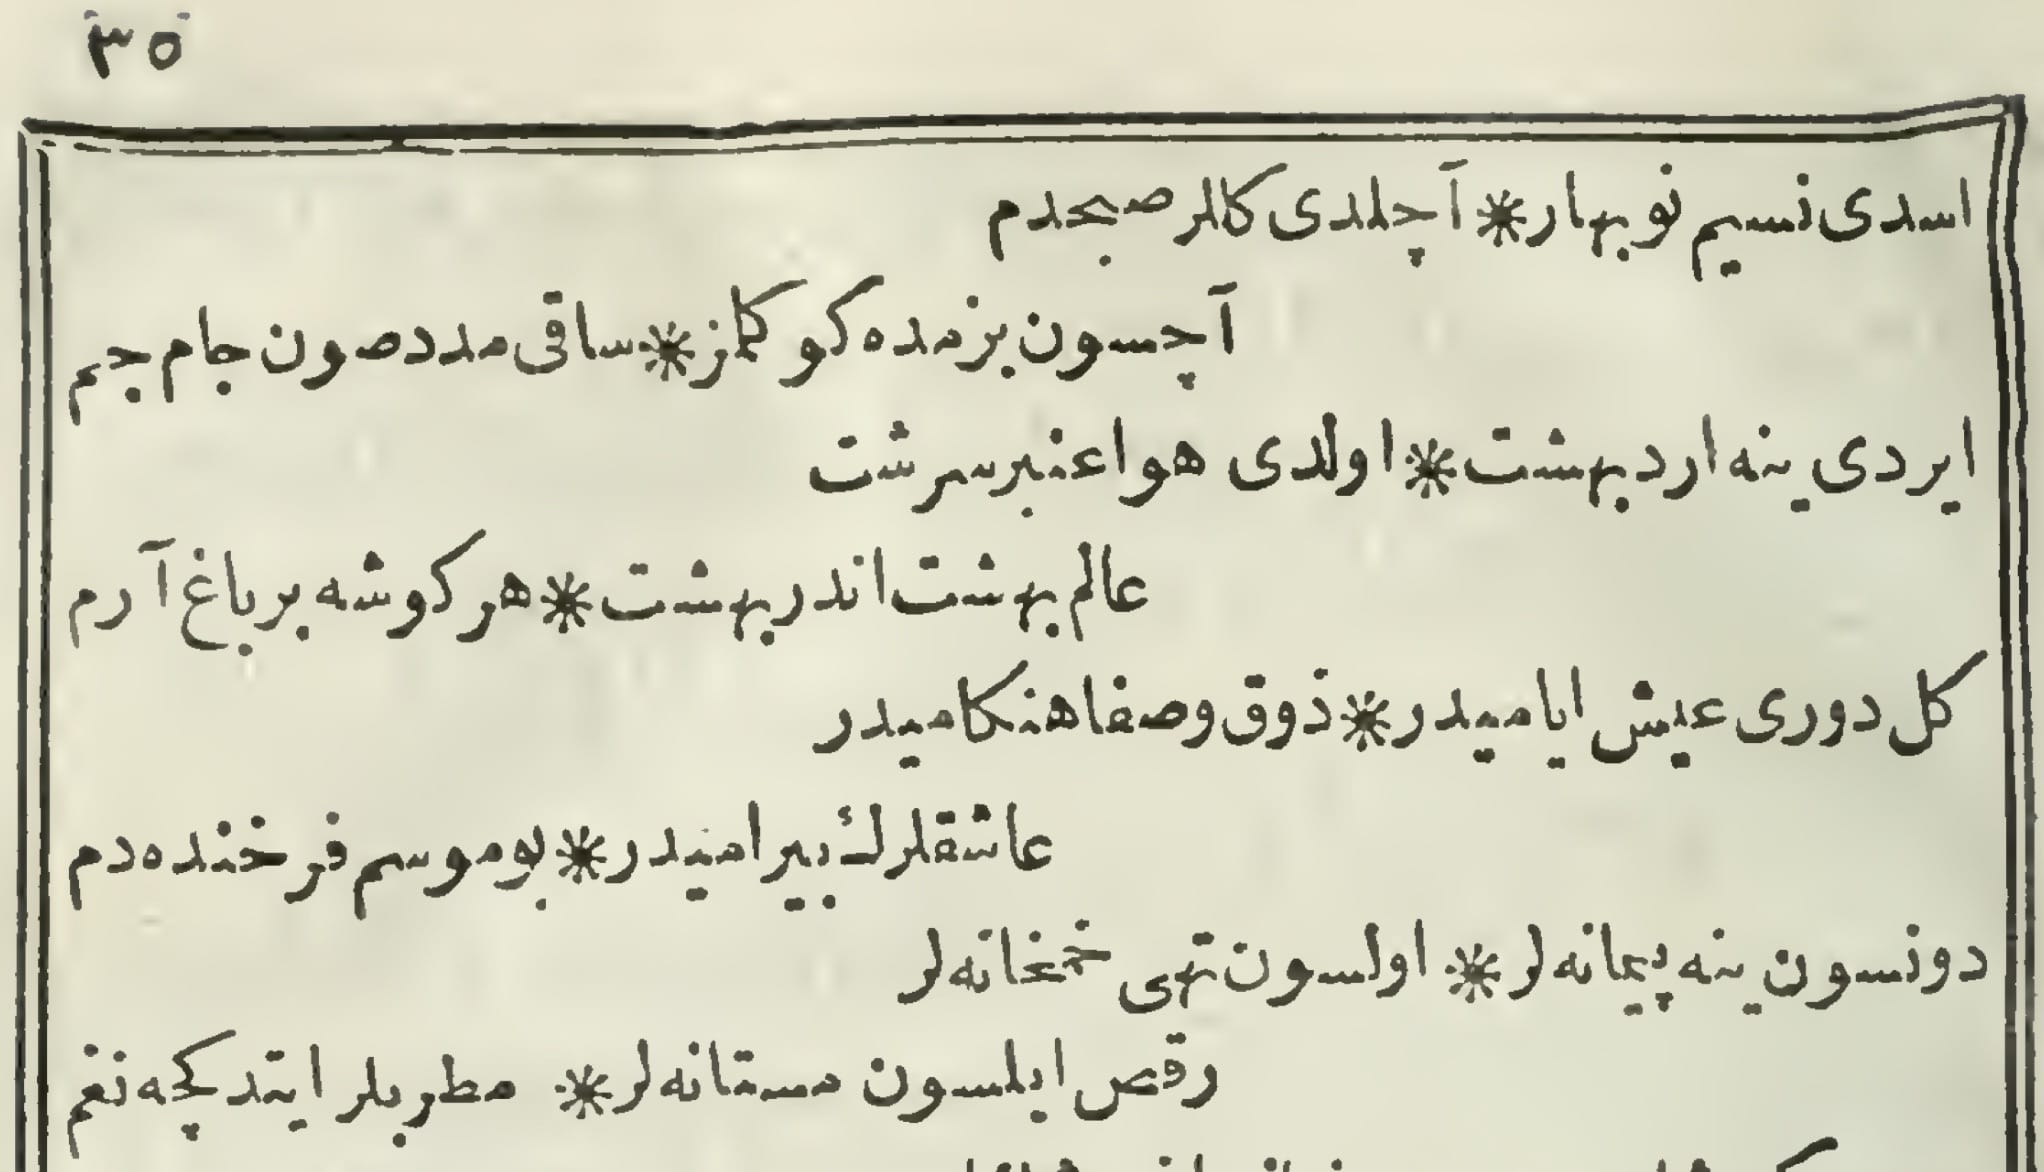 ٣٥
اسدی نسیم نوبهار * آچلدی کللر صبحدم
آچسون بزمده کوکلمز * ساقی مدد صون جام جم
ایردی ینه اردبهشت * اولدی هوا عنبر سرشت
عالم بهشت اندر بهشت * هر کوشه بر باغ آرم
کل دوری عیش ایامیدر * ذوق و صفا هنکامیدر
عاشقلرك بیرامیدر * بو موسم فرخنده دم
دونسون ینه پیمانه لر * اولسون تهی خمخانه لر
رقص ایلسون مستانه لر * مطربلر ایتدکچه نغم